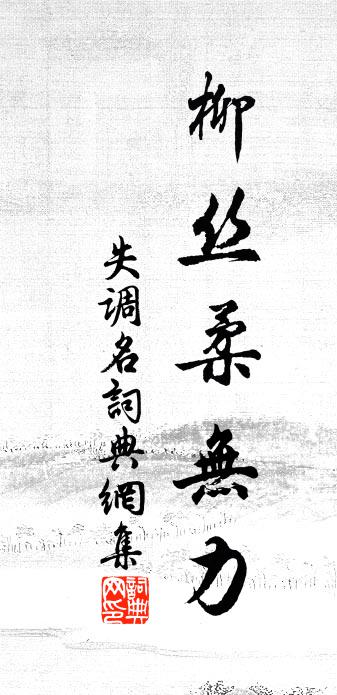 柳丝柔無力
失调名詞典網集
詞典网印